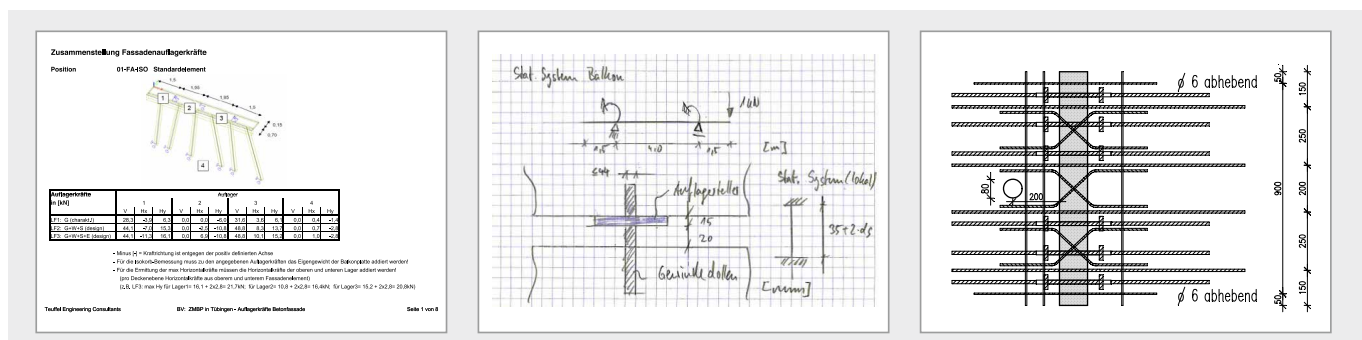 Zusammenstellung Fassadenauflagerkräfte
Position 01-FA-ISO Standardelement
1.5
1.95
1.95
1.5
0.15
0.70
1
2
3
4
Auflagerkräfte Auflager
in [kN] 1 2 3 4
V Hx Hy V Hx Hy V Hx Hy V Hx Hy
LF1: G (charakt.) 28,3 -3,9 6,3 0,0 0,0 -6,0 31,6 3,6 6,1 0,0 0,4 -1,4
LF2: G+W+S (design) 44,1 -7,0 15,3 0,0 -2,5 -10,8 48,8 8,3 13,7 0,0 0,7 -2,8
LF3: G+W+S+E (design) 44,1 -11,3 16,1 0,0 6,9 -10,8 48,8 10,1 15,2 0,0 1,0 -2,8
- Minus [-] = Kraftrichtung ist entgegen der positiv definierten Achse
- Für die Isokorb-Bemessung muss zu den angegebenen Auflagerkräften das Eigengewicht der Balkonplatte addiert werden!
- Für die Ermittlung der max Horizontalkräfte müssen die Horizontalkräfte der oberen und unteren Lager addiert werden!
(pro Deckenebene Horizontalkräfte aus oberem und unterem Fassadenelement)
(z.B. LF3: max Hy für Lager1= 16,1 + 2x2,8= 21,7kN; für Lager2= 10,8 + 2x2,8= 16,4kN; für Lager3= 15,2 + 2x2,8= 20,8kN)
Teuffel Engineering Consultants BV: ZMBP in Tübingen - Auflagerkräfte Betonfassade Seite 1 von 8
Stat. System Balkon
1kN
1,5 4,0 1,5 [m]
Auflagerteller
Stat. System (lokal)
15
20
35+2·ds
Gewindedollen
[mm]
ø 6 abhebend
50
150
250
900
200
80
200
250
150
50
ø 6 abhebend